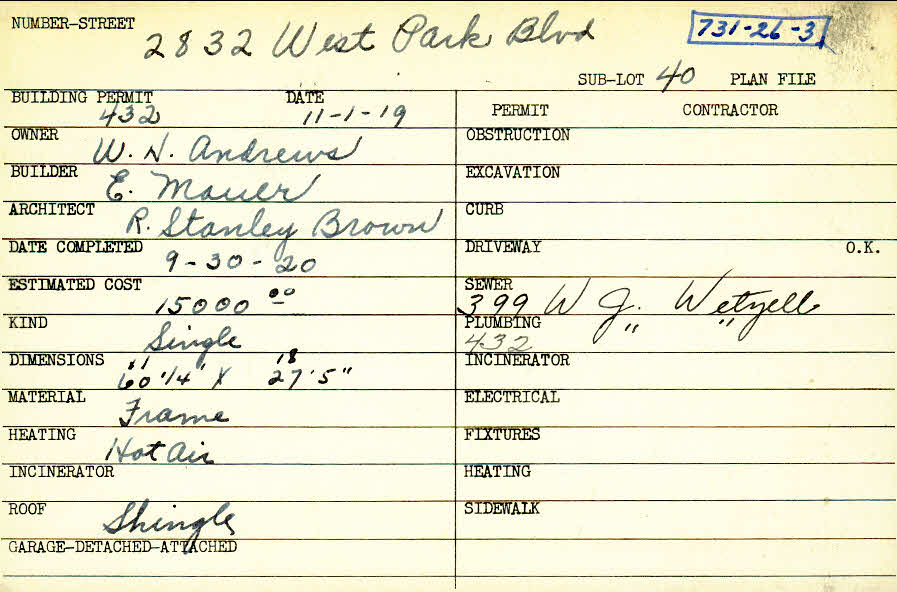 NUMBER-STREET
2832 West Park Blvd
731-26-3
SUB-LOT 40 PLAN FILE
BUILDING PERMIT DATE
432 11-1-19
PERMIT CONTRACTOR
OWNER
W. H. Andrews
OBSTRUCTION
BUILDER
E. Mauer
EXCAVATION
ARCHITECT
R. Stanley Brown
CURB
DATE COMPLETED
9-30-20
DRIVEWAY O.K.
ESTIMATED COST
15000 00
SEWER
399 W J. Wetzell
KIND
Single
PLUMBING
432 " "
DIMENSIONS 18
60'14" X 27'5"
INCINERATOR
MATERIAL
Frame
ELECTRICAL
HEATING
Hot Air
FIXTURES
INCINERATOR
HEATING
ROOF
Shingle
SIDEWALK
GARAGE-DETACHED-ATTACHED